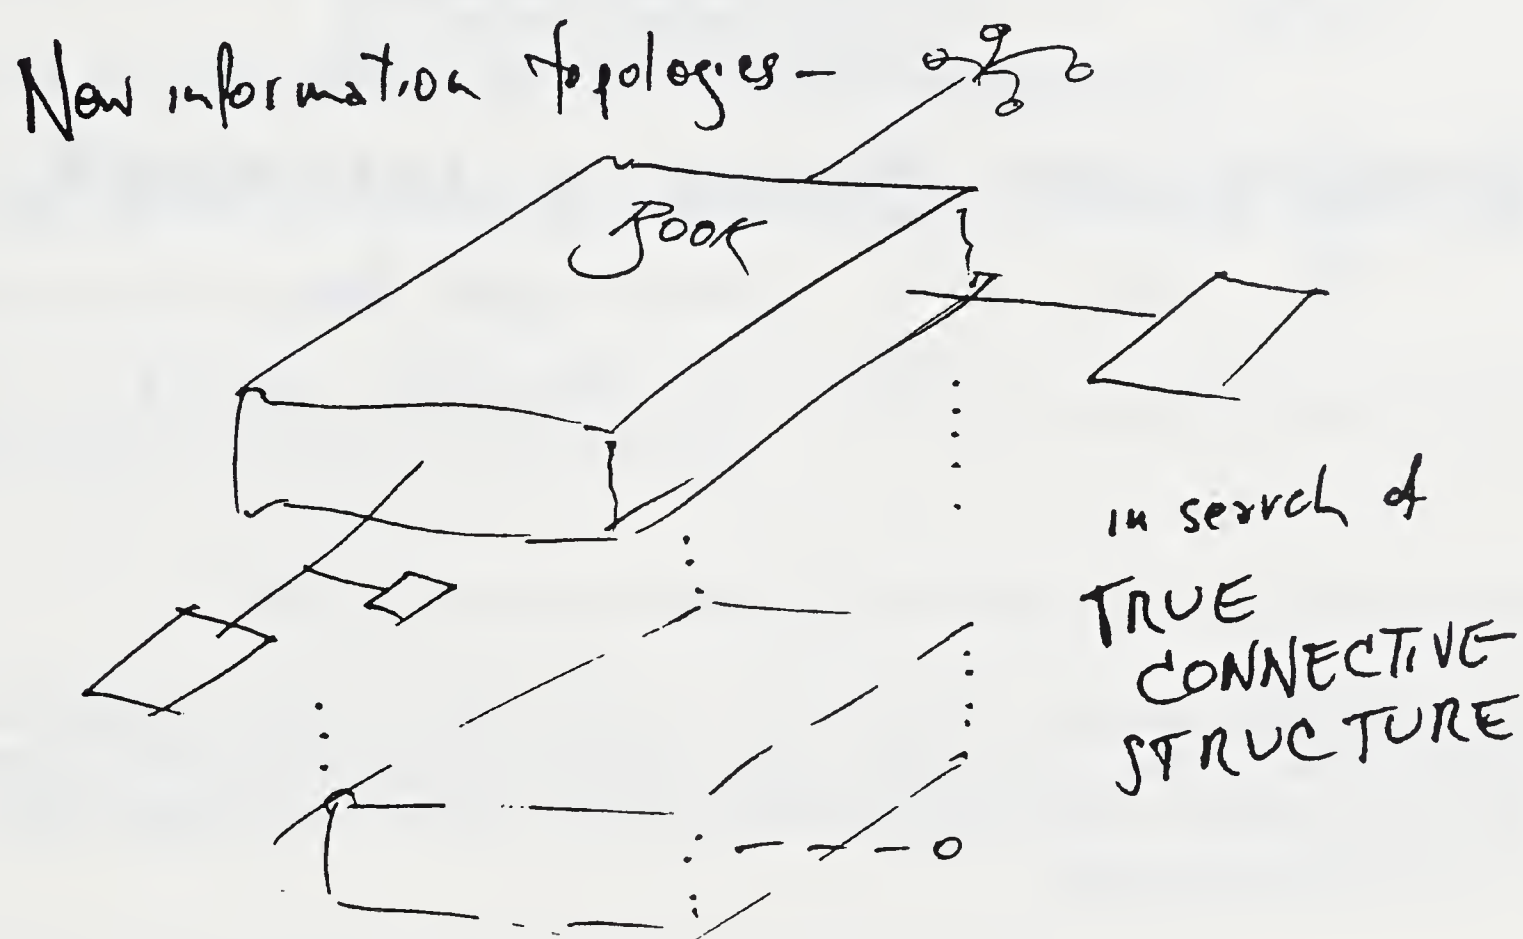 New information topologies—
BOOK
in search of
TRUE
CONNECTIVE
STRUCTURE